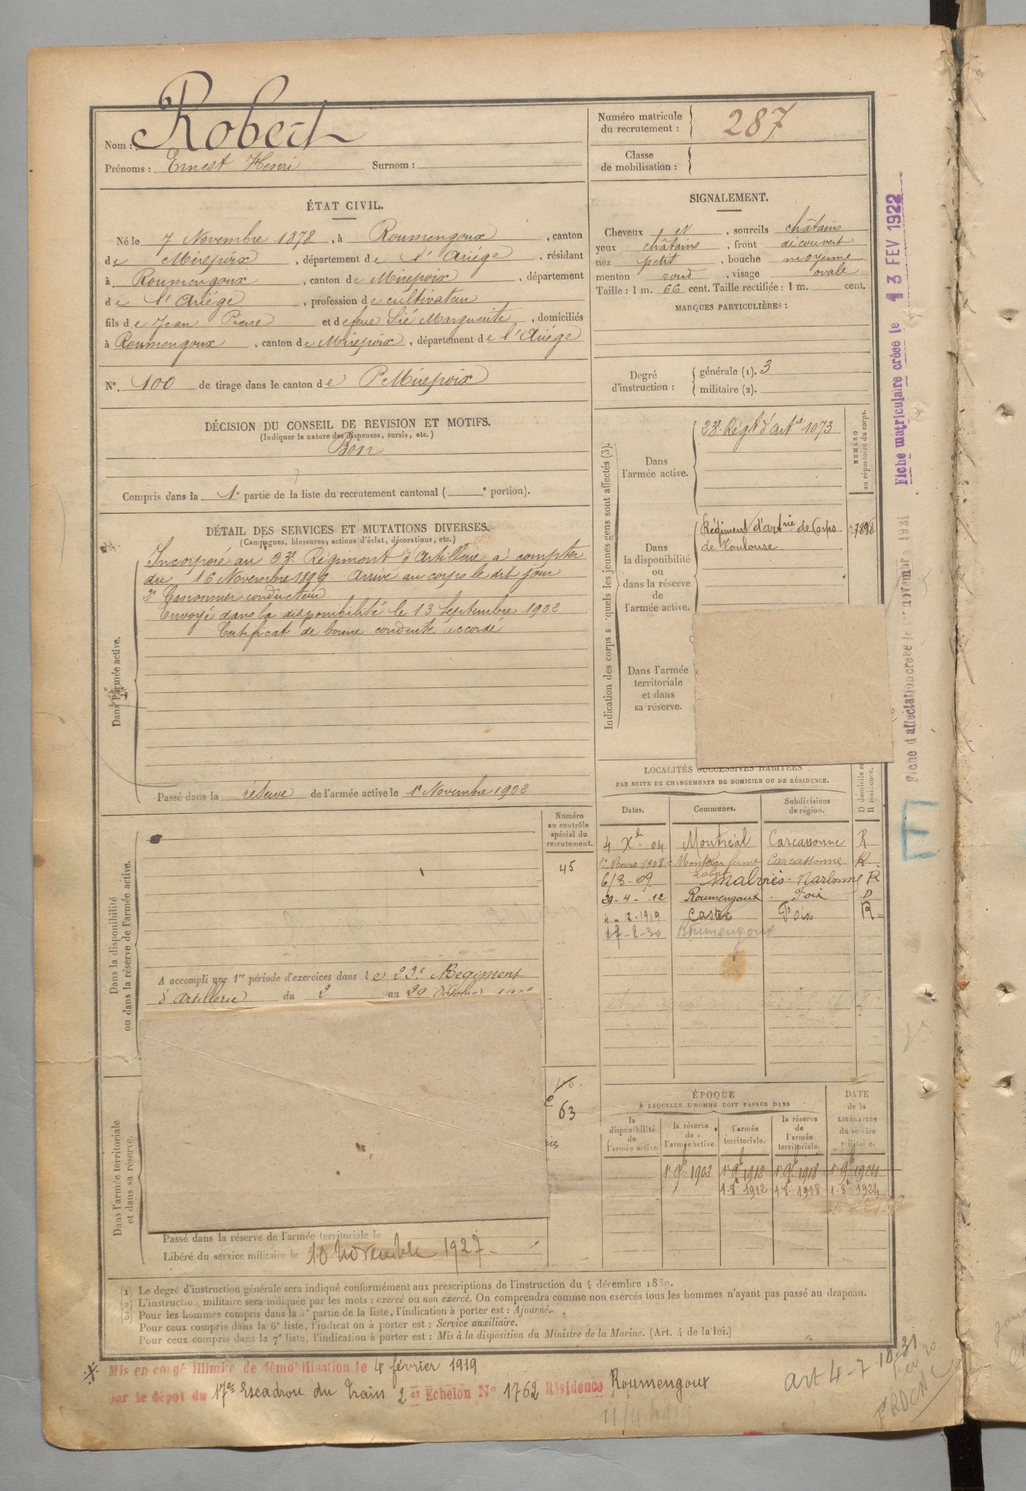 Nom : Robert
Prénoms : Ernest Henri Surnom :
Numéro matricule du recrutement : 287
Classe de mobilisation :
ÉTAT CIVIL.
Né le 7 Novembre 1878, à Roumengoux, canton
de Mirepoix, département de l'Ariège, résidant
à Roumengoux, canton de Mirepoix, département
de l'Ariège, profession de cultivateur
fils de Jean Pierre et de feue Sié Marguerite, domiciliés
à Roumengoux, canton de Mirepoix, département de l'Ariège
N° 100 de tirage dans le canton de Mirepoix
SIGNALEMENT.
Cheveux N, sourcils châtains
yeux châtains, front découvert
nez petit, bouche moyenne
menton rond, visage ovale
Taille : 1 m. 66 cent. Taille rectifiée : 1 m. cent.
MARQUES PARTICULIÈRES :
Degré d'instruction : générale (1). 3
militaire (2).
DÉCISION DU CONSEIL DE REVISION ET MOTIFS.
(Indiquer la nature des dispenses, sursis, etc.)
Bon
Compris dans la 1e partie de la liste du recrutement cantonal ( e portion).
DÉTAIL DES SERVICES ET MUTATIONS DIVERSES.
(Campagnes, blessures, actions d'éclat, décorations, etc.)
Dans l'armée active.
Incorporé au 23e Régiment d'Artillerie à compter
du 16 Novembre 1899. Arrivé au corps le dit jour
2e Canonnier conducteur
Envoyé dans la disponibilité le 13 Septembre 1902
Certificat de bonne conduite accordé
Passé dans la réserve de l'armée active le 1er Novembre 1902
Indication des corps auxquels les jeunes gens sont affectés (3).
Dans l'armée active.
23e Régt d'Artie 1073
NUMÉRO au répertoire du corps.
Dans la disponibilité ou dans la réserve de l'armée active.
Régiment d'artrie de Corps
de Toulouse.
Dans l'armée territoriale et dans sa réserve.
LOCALITÉS SUCCESSIVES HABITÉES
PAR SUITE DE CHANGEMENTS DE DOMICILE OU DE RÉSIDENCE.
Dates. Communes. Subdivisions de région. D domicile ou R résidence.
4 Xbre 04 Montréal Carcassonne R
1er Mars 1908 Carcassonne R
6/3-09 Narbonne R
30-4-12 Roumengoux Foix D
4-2-1919 Foix R
17-2-30 Roumengoux
Dans la disponibilité ou dans la réserve de l'armée active.
Numéro au contrôle spécial du recrutement.
45
A accompli une 1re période d'exercices dans le 23e Régiment
d'Artillerie du 2 au 29
Dans l'armée territoriale et dans sa réserve.
63
ÉPOQUE
À LAQUELLE L'HOMME DOIT PASSER DANS
la disponibilité de l'armée active. la réserve de l'armée active. l'armée territoriale. la réserve de l'armée territoriale.
DATE de la LIBÉRATION du service militaire.
1er 9bre 1902 1er 9bre 1912 1er 9bre 1918 1er 9bre 1924
1-8bre 1912 1-8bre 1918 1-8bre 1924
Passé dans la réserve de l'armée territoriale le
Libéré du service militaire le 10 novembre 1927
Le degré d'instruction générale sera indiqué conformément aux prescriptions de l'instruction du 4 décembre 1889.
L'instruction militaire sera indiquée par les mots : exercé ou non exercé. On comprendra comme non exercés tous les hommes n'ayant pas passé au drapeau.
Pour les hommes compris dans la 5e partie de la liste, l'indication à porter est : Ajourné.
Pour ceux compris dans la 6e liste, l'indication à porter est : Service auxiliaire.
Pour ceux compris dans la 7e liste, l'indication à porter est : Mis à la disposition du Ministre de la Marine. (Art. 4 de la loi.)
Mis en congé illimité de démobilisation le 4 février 1919
par le dépôt du 17me Escadron du Train 2er Echelon N° 1762 Résidence Roumengoux
art 4-7-10-31
Fiche matriculaire créée le 13 FEV 1922
Fiche d'affectation créée le